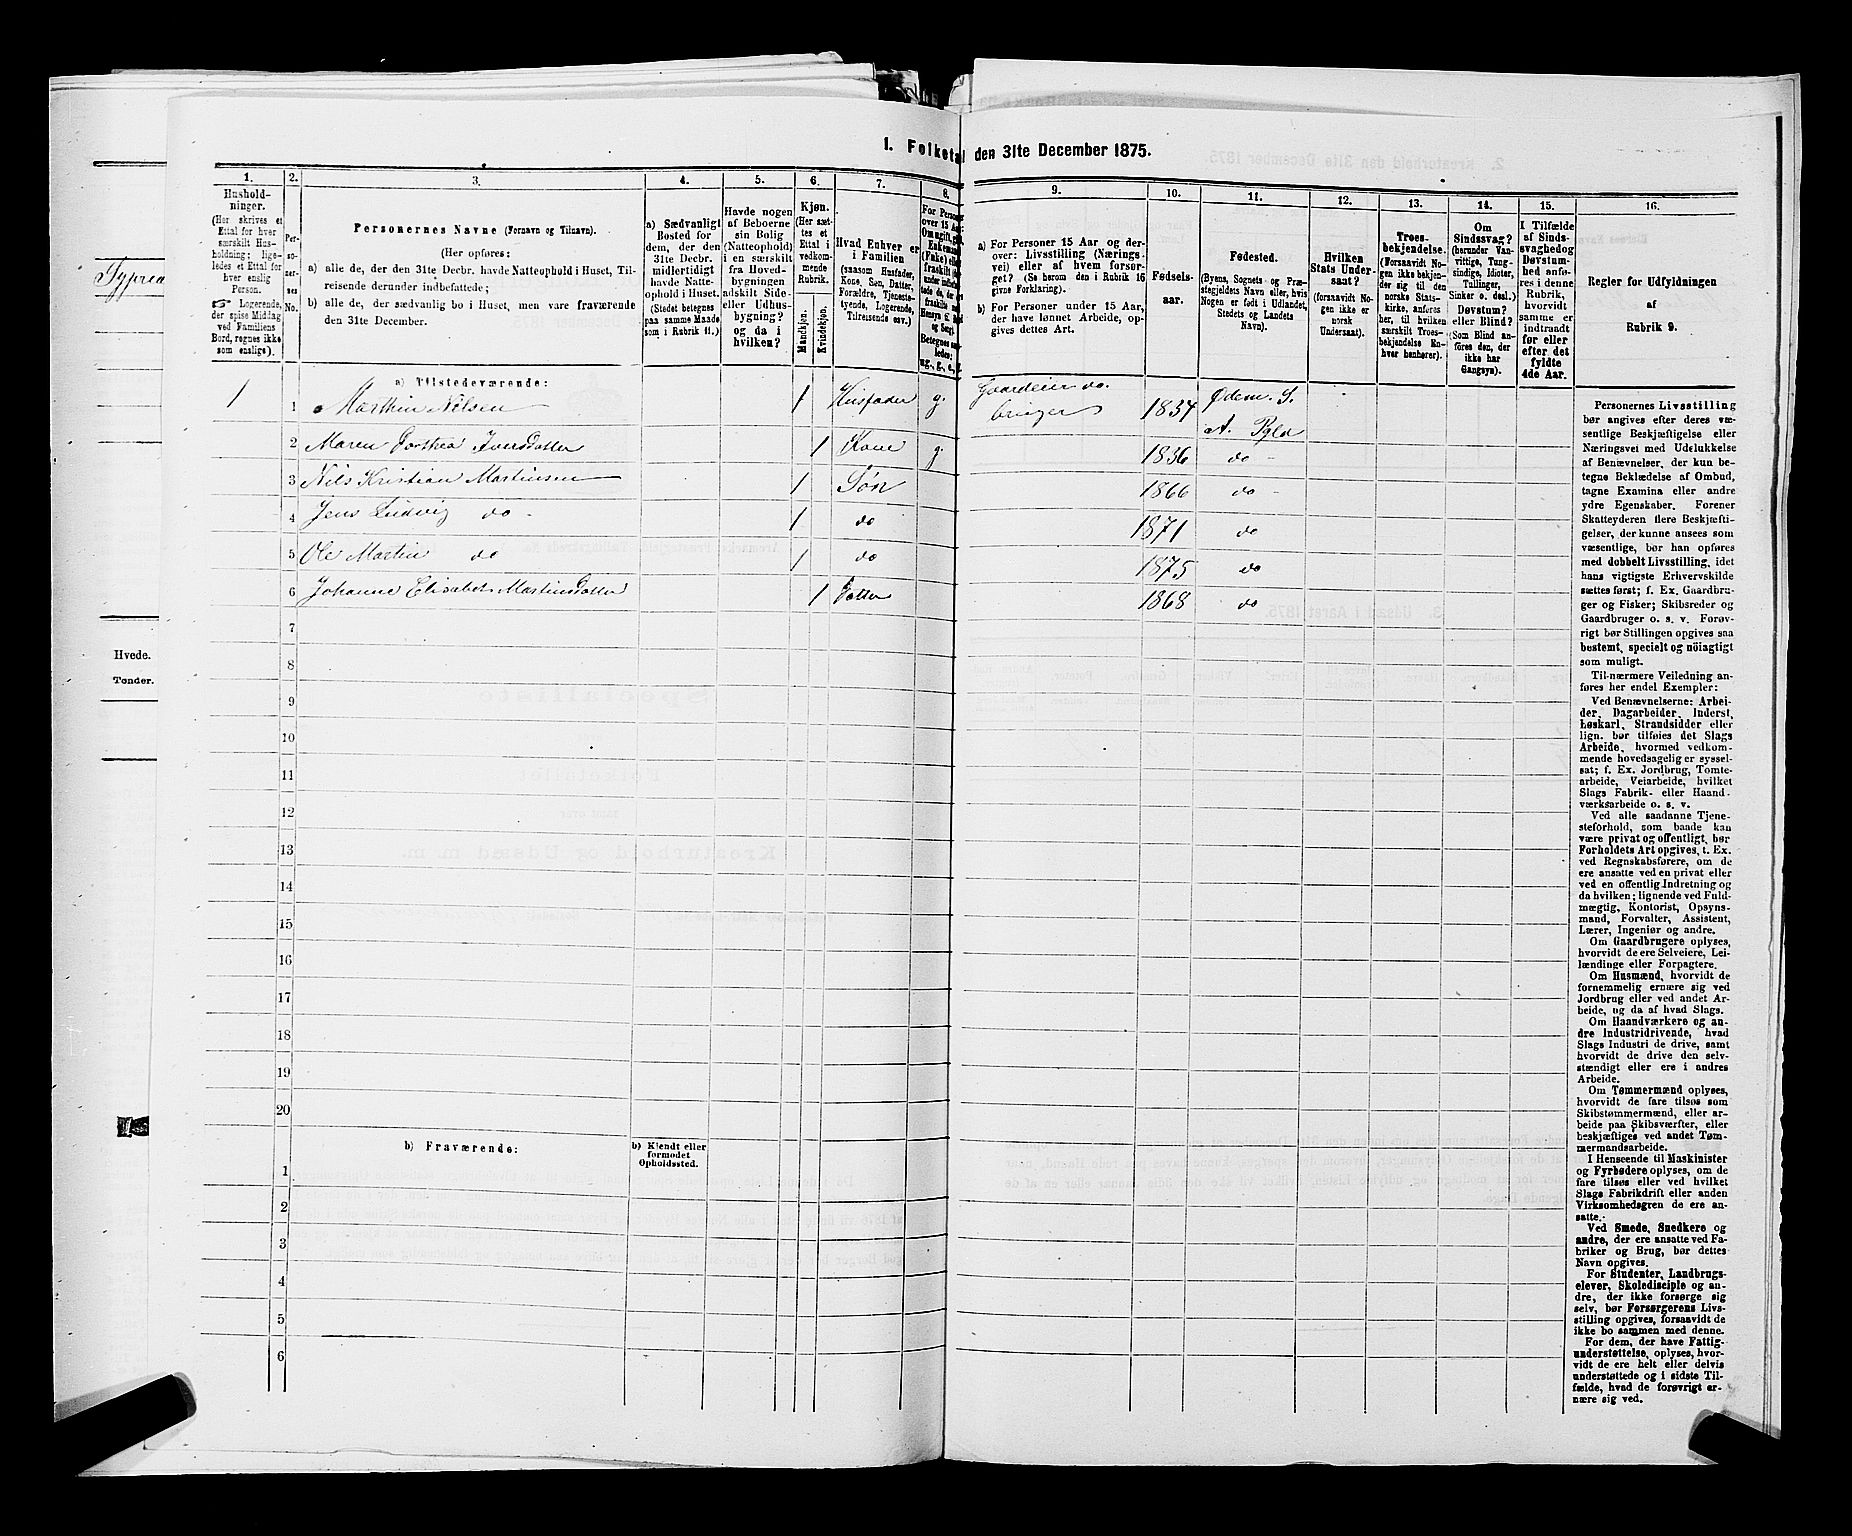 Typrea
Hvede.
Tønder.
1. Folketal den 31te December 1875.
1.
Husholdninger.
(Her skrives et
Ettal for hver
særskilt Husholdning;
ligeledes et Ettal for
hver enslig
Person.
☞ Logerende,
der spise Middag
ved Familiens
Bord, regnes ikke
som enslige).
2.
Personernes No.
3.
Personernes Navne (Fornavn og Tilnavn).
(Her opføres:
a) alle de, der den 31te Decbr. havde Natteophold i Huset, Tilreisende derunder indbefattede;
b) alle de, der sædvanlig bo i Huset, men vare fraværende
den 31te December.
4.
a) Sædvanligt
Bosted for
dem, der den
31te Decbr.
midlertidigt
havde Natteophold i Huset.
(Stedet betegnes
paa samme Maade
som i Rubrik 11.)
5.
Havde nogen
af Beboerne
sin Bolig
(Natteophold)
i en særskilt
fra Hovedbygningen
adskilt Side-
eller Udhusbygning?
og da i
hvilken?
6.
Kjøn.
(Her sættes et
Ettal i
vedkommende
Rubrik.
Mandkjøn.
Kvindekjøn.
7.
Hvad Enhver er
i Familien
(saasom Husfader,
Kone, Søn, Datter,
Forældre, Tjenestetyende, Logerende,
Tilreisende osv.)
8.
For Personer
over 15 Aar:
9.
a) For Personer 15 Aar og derover: Livsstilling (Næringsvei) eller af hvem forsørget? (Se herom den i Rubrik 16
givne Forklaring).
b) For Personer under 15 Aar,
der have lønnet Arbeide, opgives dettes Art.
10.
Fødselsaar.
11.
Fødested.
(Byens, Sognets og Præstegjeldets Navn eller, hvis
Nogen er født i Udlandet,
Stedets og Landets
Navn).
12.
Hvilken
Stats Undersaat?
(forsaavidt Nogen ikke er
norsk
Undersaat).
13.
Troesbekjendelse.
(Forsaavidt Nogen ikke bekjender sig til den
norske Statskirke, anføres
her, til hvilken
særskilt Troesbekjendelse Enhver henhører).
14.
Om
Sindssvag?
(herunder Vanvittige, Tungsindige, Idioter,
Tullinger,
Sinker o. desl.)
Døvstum?
eller Blind?
(Som Blind anføres den, der
ikke har
Gangsyn).
15.
I Tilfælde
af Sindssvaghed og
Døvstumhed anføres i denne
Rubrik,
hvorvidt
samme er
indtraadt
før eller
efter det
fyldte
4de Aar.
16.
Regler for Udfyldningen
af
Rubrik 9.
a) Tilstedeværende:
1 1 Marthin Nilsen 1 Husfader g. Gaardeier do. 1834 Ødem. S.
2 Maren Dorthea Iversdatter 1 Kone g. 1836 do
3 Nils Kristian Martinsen 1 Søn 1866 do
4 Jens Ludvig do 1 do 1871 do
5 Ole Martin do 1 do 1875 do
6 Johanne Elisabet Martinsdatter 1 Datter 1868 do
7
8
9
10
11
12
13
14
15
16
17
18
19
20
b) Fraværende:
b) Kjendt eller
formodet
Opholdssted.
1
2
3
4
5
6
Personernes Livsstilling
bør angives efter deres væsentlige Beskjæftigelse eller
Næringsvei med Udelukkelse
af Benævnelser, der kun betegne Beklædelse af Ombud,
tagne Examina eller andre
ydre Egenskaber. Forener
Skatteyderen flere Beskjæftigelser, der kunne ansees som
væsentlige, bør han opføres
med dobbelt Livsstilling, idet
hans vigtigste Erhvervskilde
sættes først; f. Ex. Gaardbruger og Fisker; Skibsreder og
Gaardbruger o. s. v. Forøvrigt bør Stillingen opgives saa
bestemt, specielt og nöiagtigt
som muligt.
Til nærmere Veiledning anføres her endel Exempler:
Ved Benævnelserne: Arbeider, Dagarbeider, Inderst,
løskarl, Strandsidder eller
lign. bør tilføies det Slags
Arbeide, hvormed vedkommende hovedsagelig er sysselsat; f. Ex. Jordbrug, Tomtearbeide, Veiarbeide, hvilket
Slags Fabrik- eller Haandværksarbeide o. s. v.
Ved alle saadanne Tjenesteforhold, som baade kan
være privat og offentligt, bør
Forholdets Art opgives, f. Ex.
ved Regnskabsførere, om de
ere ansatte ved en privat eller
ved en offentlig Indretning og
da hvilken; lignende ved Fuldmægtig, Kontorist, Opsynsmand, Forvalter, Assistent,
Lærer, Ingeniør og andre.
Om Gaardbrugere oplyses,
hvorvidt de ere Selveiere, Leilændinge eller Forpagtere.
Om Husmænd, hvorvidt de
fornemmelig ernære sig ved
Jordbrug eller ved andet Arbeide, og da af hvad Slags.
Om Haandværkere og andre Industridrivende, hvad
Slags Industri de drive, samt
hvorvidt de drive den selvstændigt eller ere i andres
Arbeide.
Om Tømmermænd oplyses,
hvorvidt de fare tilsøs som
Skibstømmermænd, eller arbeide paa Skibsværfter, eller
beskjæftiges ved andet Tømmermandsarbeide.
I Henseende til Maskinister
og Fyrbødere oplyses, om de
fare tilsøs eller ved hvilket
Slags Fabrikdrift eller anden
Virksomhedsgren de ere ansatte.
Ved Smede, Snedkere og
andre, der ere ansatte ved Fabriker og Brug, bør dettes
Navn opgives.
For Studenter, Landbrugselever, Skoledisciple og andre, der ikke forsørge sig
selv, bør Forsørgerens Livsstilling opgives, forsaavidt de
ikke bo sammen med denne.
For dem, der have Fattigunderstøttelse, oplyses, hvorvidt de ere helt eller delvis
understøttede og i sidste Tilfælde, hvad de forøvrigt ernære sig ved.